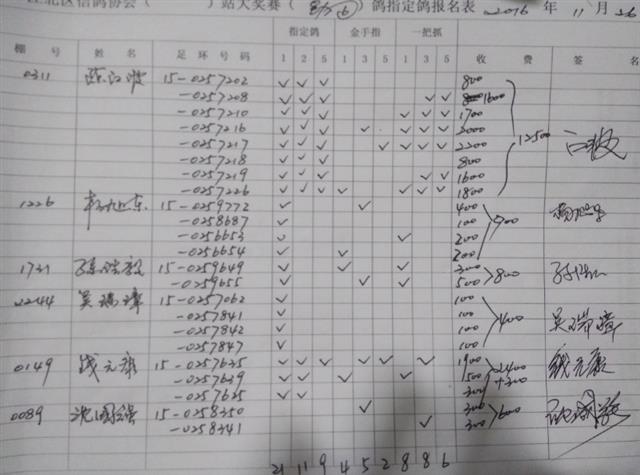 江北区信鸽协会（ ）站大奖赛（ ）鸽指定鸽报名表 2016 年 11 月 26
指定鸽 金手指 一把抓
棚 号 姓 名 足 环 号 码 1 2 5 1 3 5 1 3 5 收 费 签 名
0311 15-0257202 ✓ ✓ ✓ 800
-0257208 ✓ ✓ ✓ ✓ ✓ 1600
-0257210 ✓ ✓ ✓ ✓ ✓ ✓ 1700
-0257216 ✓ ✓ ✓ ✓ ✓ ✓ ✓ 2000
-0257217 ✓ ✓ ✓ ✓ ✓ ✓ ✓ 2200 12500
-0257218 ✓ ✓ ✓ 800
-0257219 ✓ ✓ ✓ ✓ ✓ 1600
-0257226 ✓ ✓ ✓ ✓ ✓ ✓ ✓ 1800
1226 15-0259772 ✓ ✓ 400
-0258687 ✓ 100 900
-0256653 ✓ ✓ 200
-0256654 ✓ ✓ 200
1731 15-0259649 ✓ ✓ ✓ 300 800
-0259655 ✓ ✓ ✓ 500
2244 吴瑞璋 15-0257062 ✓ 100
-0257841 ✓ 100 400 吴瑞璋
-0257842 ✓ 100
-0257847 ✓ 100
0149 钱元康 15-0257635 ✓ ✓ ✓ ✓ ✓ ✓ ✓ 1900 2400 钱元康
-0257639 ✓ ✓ ✓ ✓ 500 +300
-0257625 ✓ ✓ 300
0089 15-0258350 ✓ 300 600
-0258341 ✓ 300
21 11 9 4 5 2 8 8 6